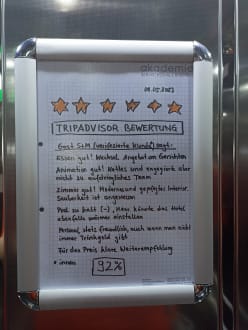 akademie
09.05.2023
TRIPADVISOR BEWERTUNG
Gast SIM (verifizierte Kundin) sagt:
Essen gut! Wechsel. Angebot an Gerichten
Animation gut! Nettes und engagierte aber
nicht zu aufdringliches Team
Zimmer gut! Modernes und gepflegtes Interior.
Sauberkeit ist angemessen
Pool zu kalt (-), Heiz könnte das Hotel
ebenfalls wärmer einstellen
Personal stets freundlich, auch wenn man nicht
immer Trinkgeld gibt
Für den Preis klare Weiterempfehlung
* innen
92%